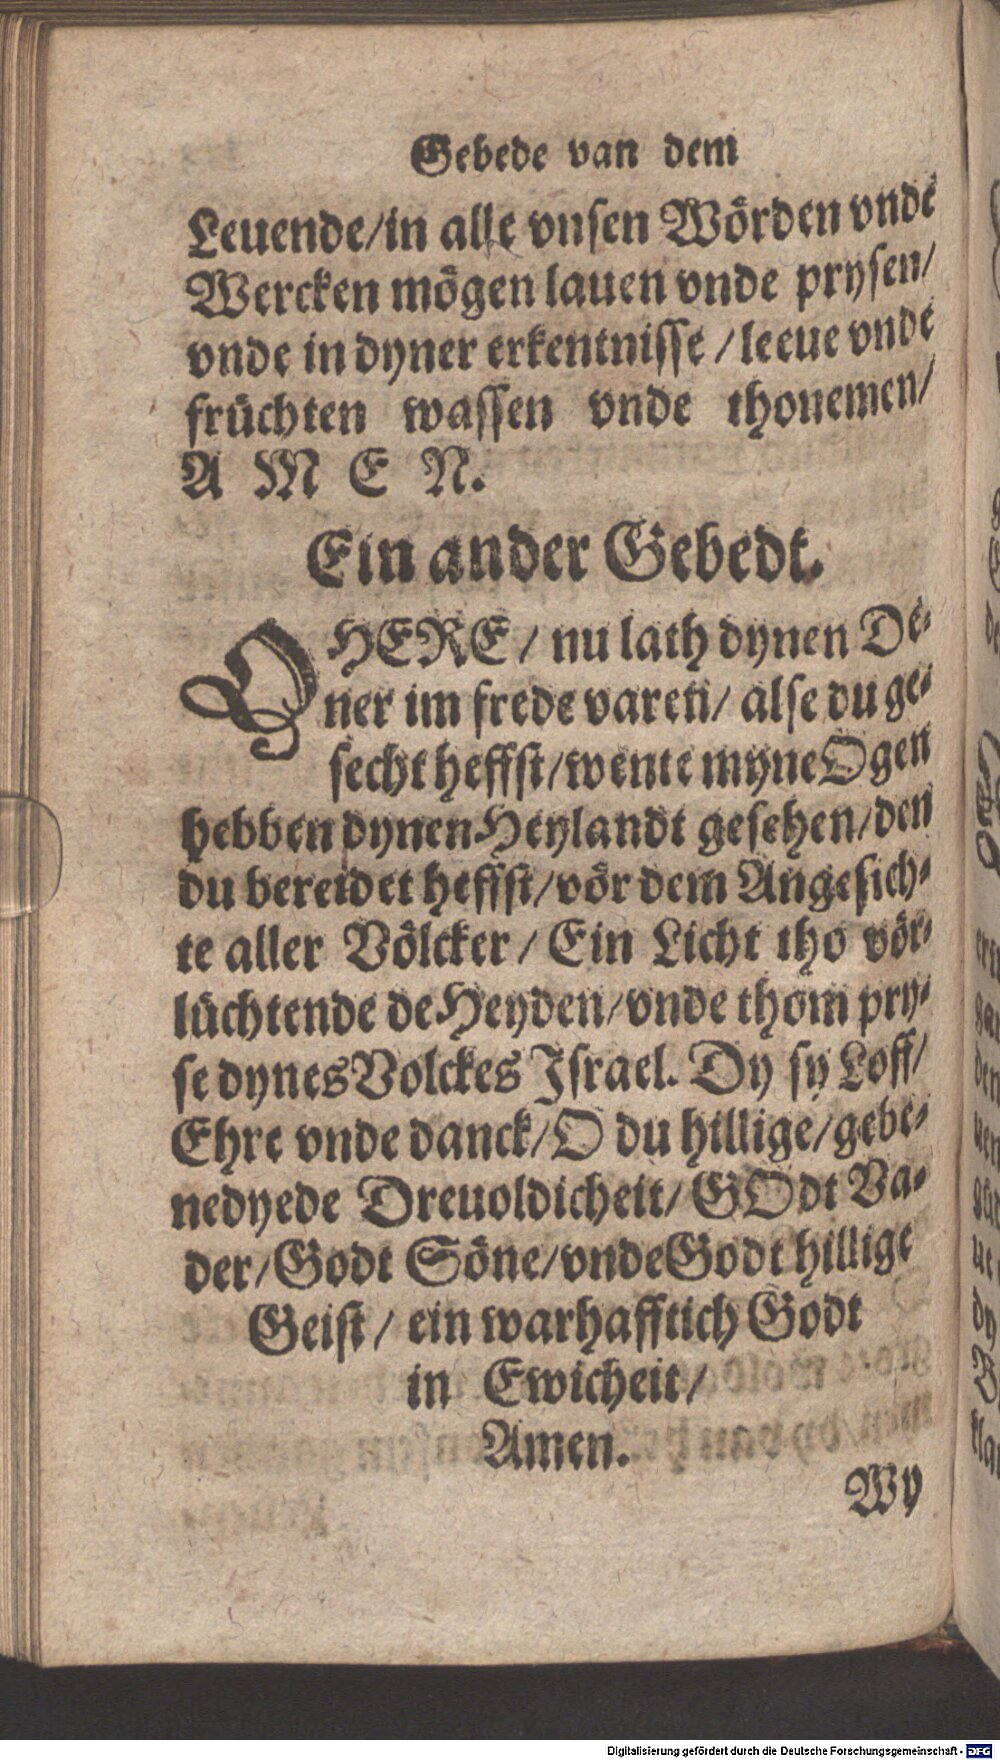 Gebede van dem
Leuende/in alle vnsen Wörden vnde
Wercken mögen lauen vnde prysen/
vnde in dyner erkentnisse /leeue vnde
früchten wassen vnde thonemen/
A M E N.
Ein ander Gebedt.
O HERE/ nu lath dynen De-
ner im frede varen/ alse du ge-
secht heffst/wente myne Ogen
hebben dynen Heylandt gesehen/den
du bereidet heffst/vör dem Angesich-
te aller Völcker/ Ein Licht tho vör-
lüchtende de Heyden/vnde thom pry-
se dynes Volckes Israel. Dy sy Loff/
Ehre vnde danck/O du hillige/gebe-
nedyede Dreuoldicheit/ GOdt Va-
der/Godt Söne/vnde Godt hillige
Geist/ ein warhafftich Godt
in Ewicheit/
Amen.
Wy
Digitalisierung gefördert durch die Deutsche Forschungsgemeinschaft - DFG